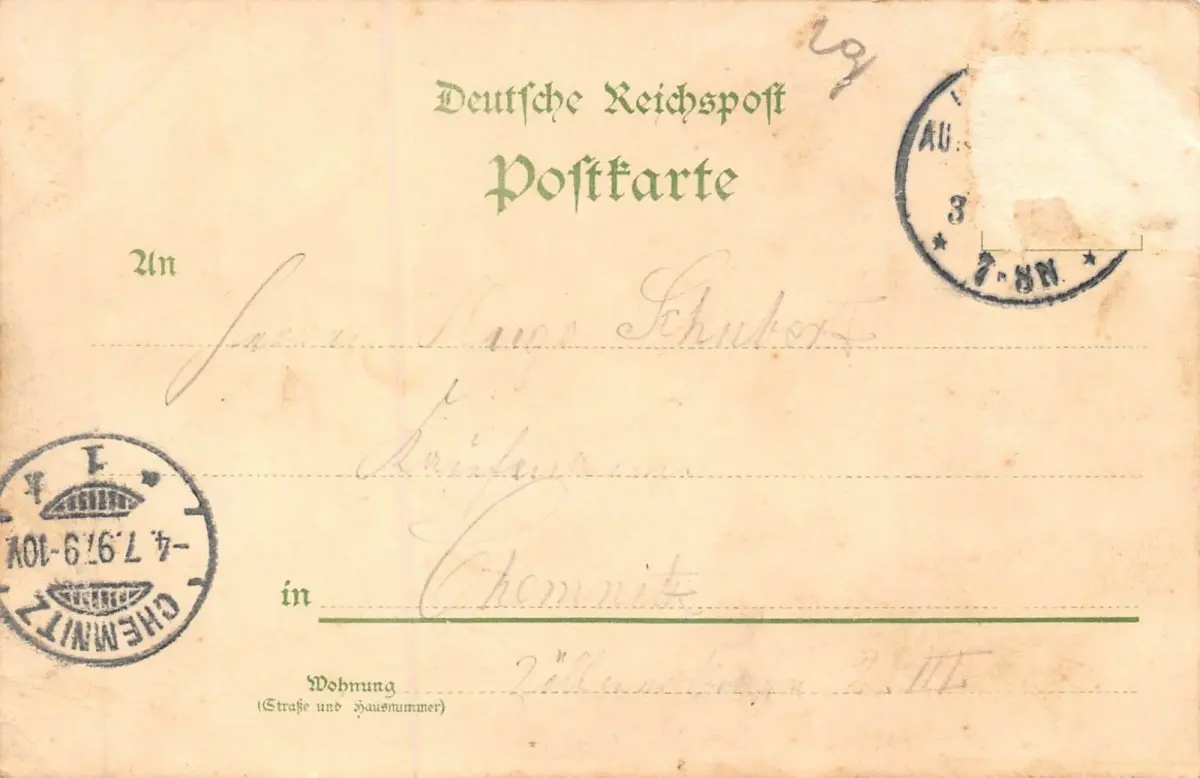 29
Deutsche Reichspost
Postkarte
AU
3
7-8N
An
Herrn Hugo Schubert
Kaufmann
in Chemnitz
Wohnung
(Straße und Hausnummer)
2. III
CHEMNITZ
-4.7.97.9-10V
1
k